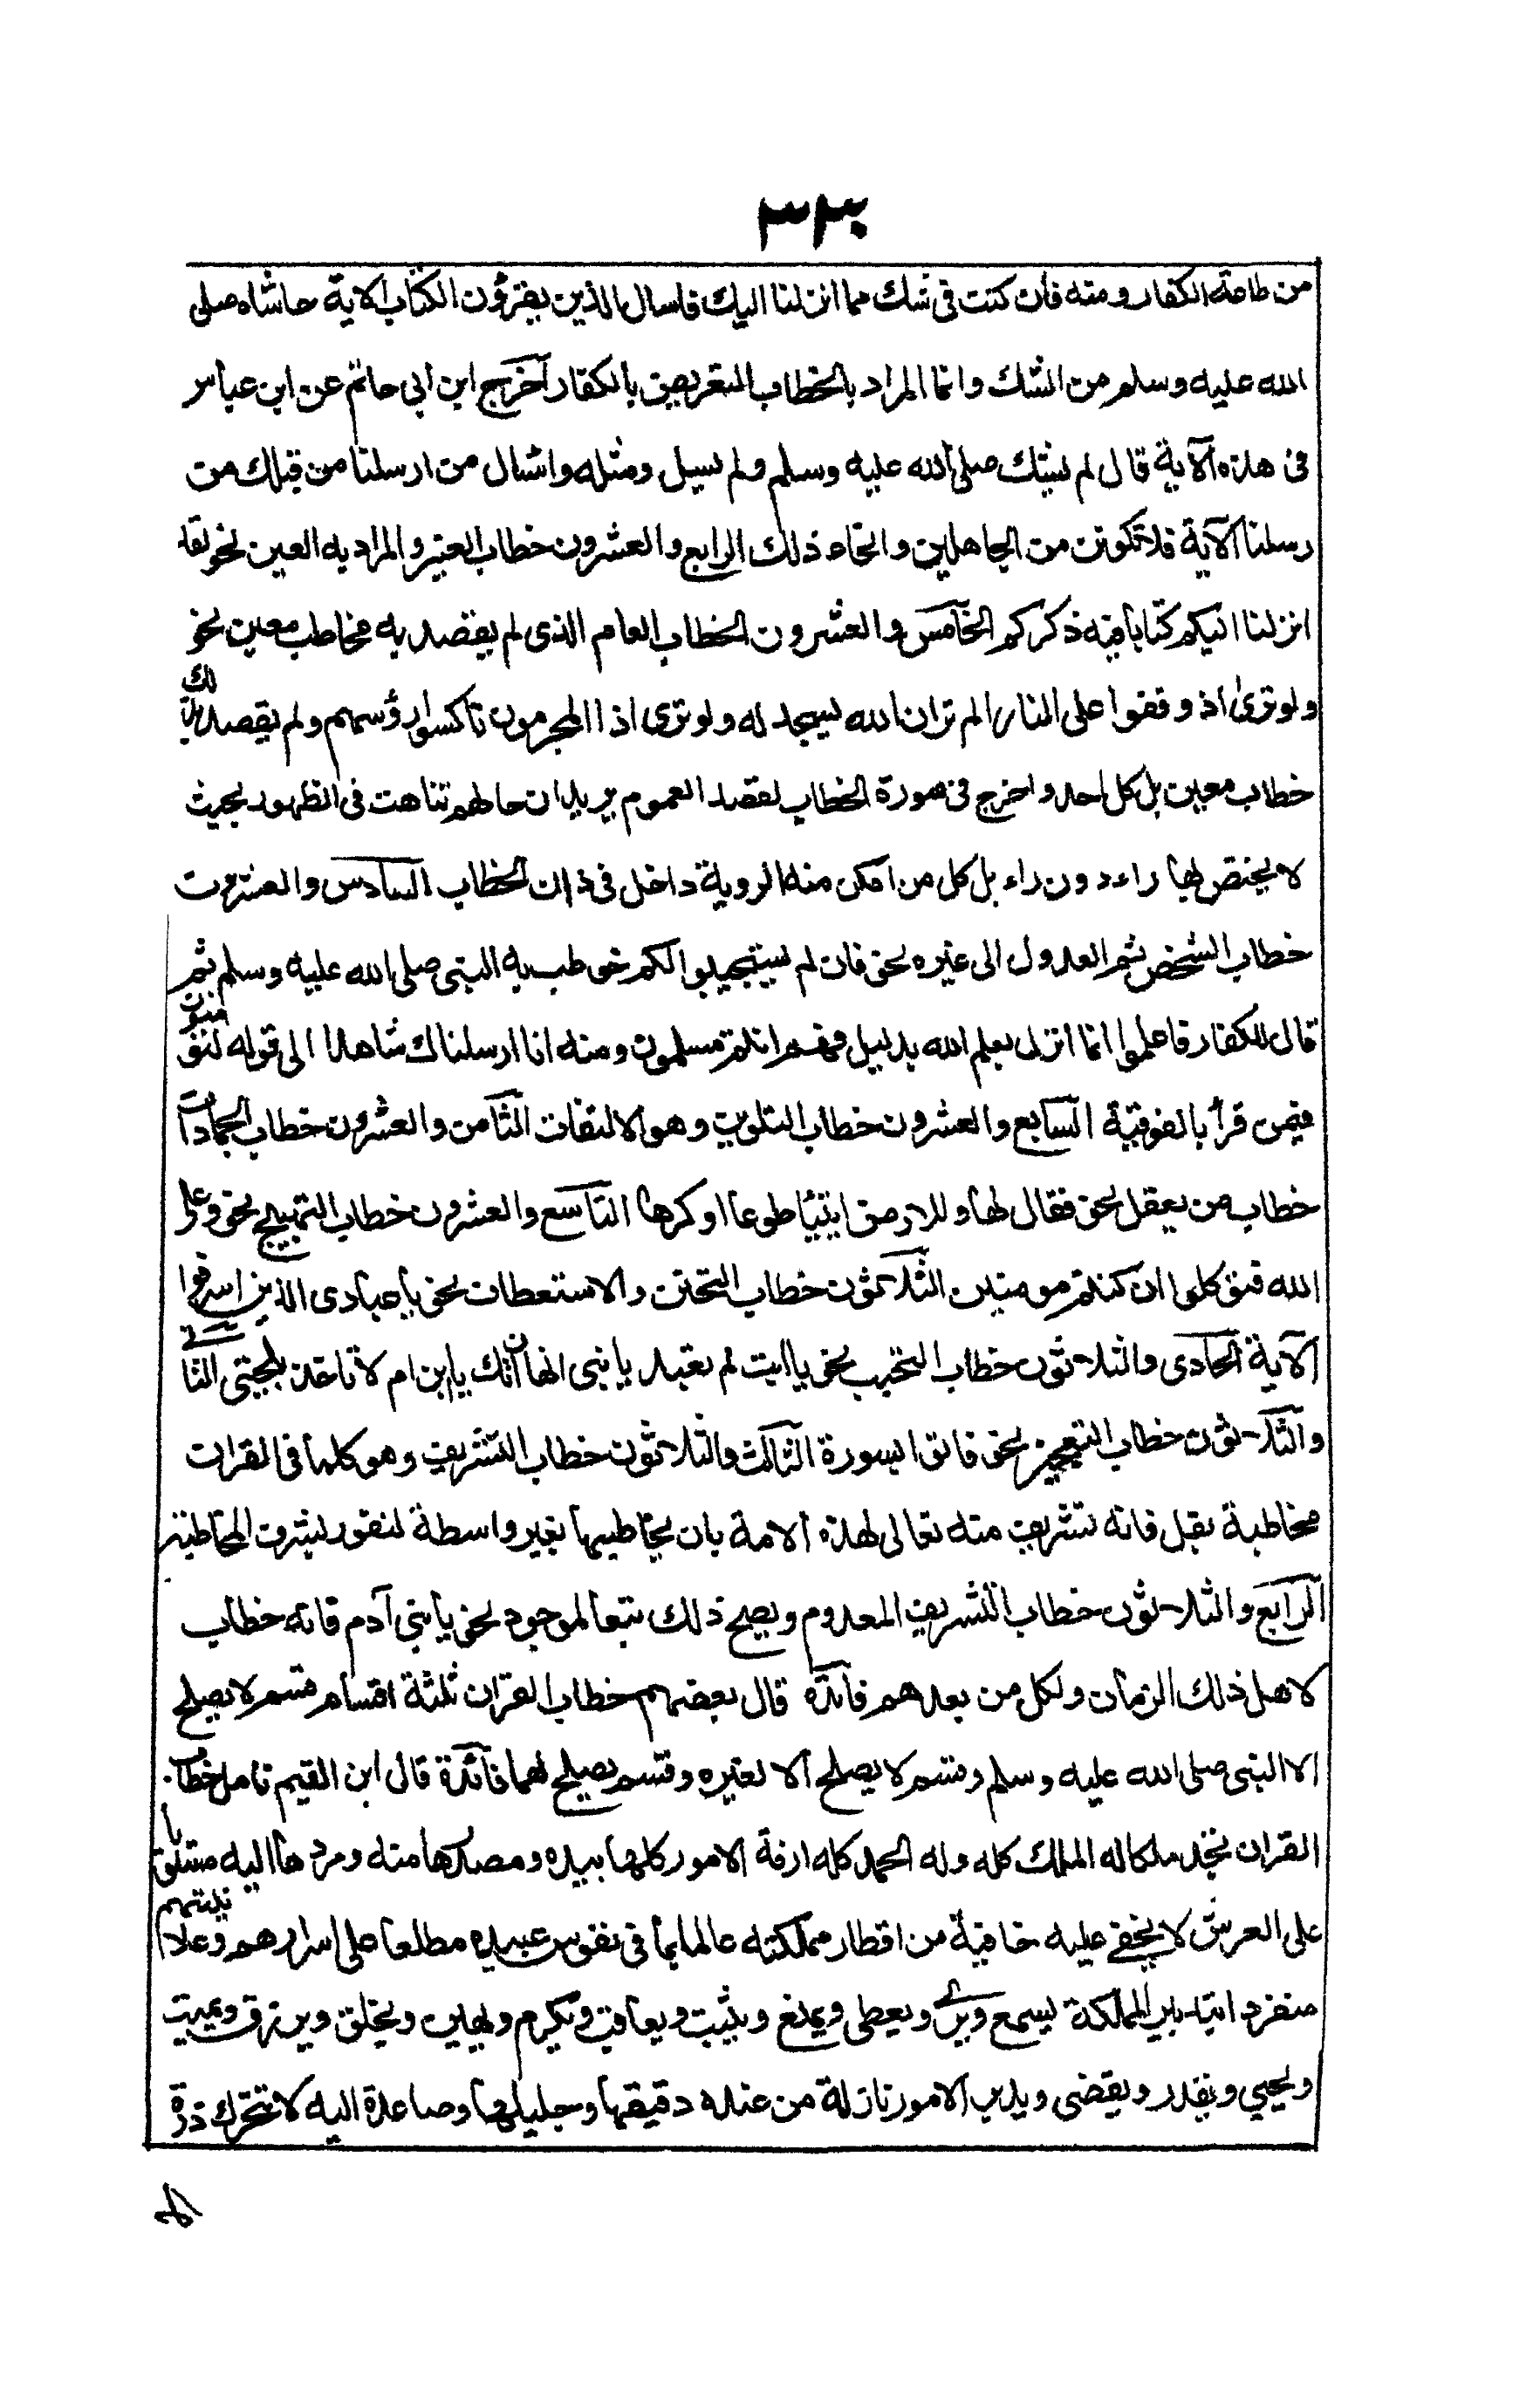 ٣٣٠
من طاعة الكفار ومنه فان كنت في شك مما انزلنا اليك فاسال الذين يقرؤن الكتاب الاية حاشاه صلى
الله عليه وسلم من الشك وانما المراد بالخطاب التعريض بالكفار اخرج ابن ابي حاتم عن ابن عباس
في هذه الآية قال لم يشك صلى الله عليه وسلم ولم يسئل ومثله واسال من ارسلنا من قبلك من
رسلنا الآية فلا تكونن من الجاهلين وانحاء ذلك الرابع والعشرون خطاب الغير والمراد به العين نحو لقد
انزلنا اليكم كتابا فيه ذكركم الخامس والعشرون الخطاب العام الذي لم يقصد به مخاطب معين نحو
ولو ترى اذ وقفوا على النار الم تر ان الله يسجد له ولو ترى اذ المجرمون ناكسوا رؤسهم ولم يقصد بذلك
خطاب معين بل كل احد واخرج في صورة الخطاب لقصد العموم يريد ان حالهم تناهت في الظهور بحيث
لا يختص بها راء دون راء بل كل من امكن منه الروية داخل في ذلك الخطاب السادس والعشرون
خطاب الشخص ثم العدول الى غيره نحو فان لم يستجيبوا لكم خوطب به النبي صلى الله عليه وسلم ثم
قال للكفار فاعلموا انما انزل بعلم الله بدليل فهل انتم مسلمون ومنه انا ارسلناك شاهدا الى قوله لتؤمنون
فيمن قرأ بالفوقية السابع والعشرون خطاب التلوين وهو الالتفات الثامن والعشرون خطاب الجمادات
خطاب من يعقل نحو فقال لها وللارض ائتيا طوعا او كرها التاسع والعشرون خطاب التهييج نحو وعلى
الله فتوكلوا ان كنتم مومنين الثلاثون خطاب التحنن والاستعطاف نحو يا عبادي الذين اسرفوا
الآية الحادي والثلاثون خطاب التحبب نحو يا ابت لم تعبد يا بني انها ان تك يا ابن ام لا تاخذ بلحيتي الثاني
والثلاثون خطاب التعجيز نحو فاتوا بسورة الثالث والثلاثون خطاب التشريف وهو كلما في القران
مخاطبة بقل فانه تشريف منه تعالى لهذه الامة بان يخاطبها بغير واسطة لتفوز بشرف المخاطبة
الرابع والثلاثون خطاب التشريف المعدوم ويصح ذلك تبعا لموجود نحو يا بني آدم فانه خطاب
لاهل ذلك الزمان ولكل من بعدهم فائدة قال بعضهم خطاب القران ثلثة اقسام قسم لا يصلح
الا النبي صلى الله عليه وسلم وقسم لا يصلح الا لغيره وقسم يصلح لهما فائدة قال ابن القيم تامل خطاب
القران تجد ملكا له الملك كله وله الحمد كله ازمة الامور كلها بيده ومصدرها منه ومردها اليه مستويا
على العرش لا يخفى عليه خافية من اقطار مملكته عالما بما في نفوس عبيده مطلعا على اسرارهم وعلانيتهم
منفردا بتدبير المملكة يسمع ويرى ويعطي ويمنع ويثيب ويعاقب ويكرم ويهين ويخلق ويرزق ويميت
ويحيي ويقدر ويقضي ويدبر الامور نازلة من عنده دقيقها وجليلها وصاعدة اليه لا تتحرك ذرة